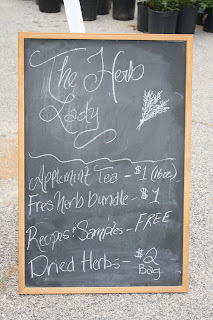 The Herb
Lady
Applemint Tea - $1 (16oz)
Fresh herb bundle - $1
Recipes & Samples - FREE
Dried Herbs - $2
Bag